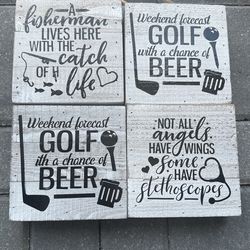 A
fisherman
LIVES HERE
WITH THE
catch
OF H
life
Weekend forecast
GOLF
with a chance of
BEER
Weekend forecast
GOLF
ith a chance of
BEER
NOT ALL
angels
HAVE WINGS
some
HAVE
stethoscopes